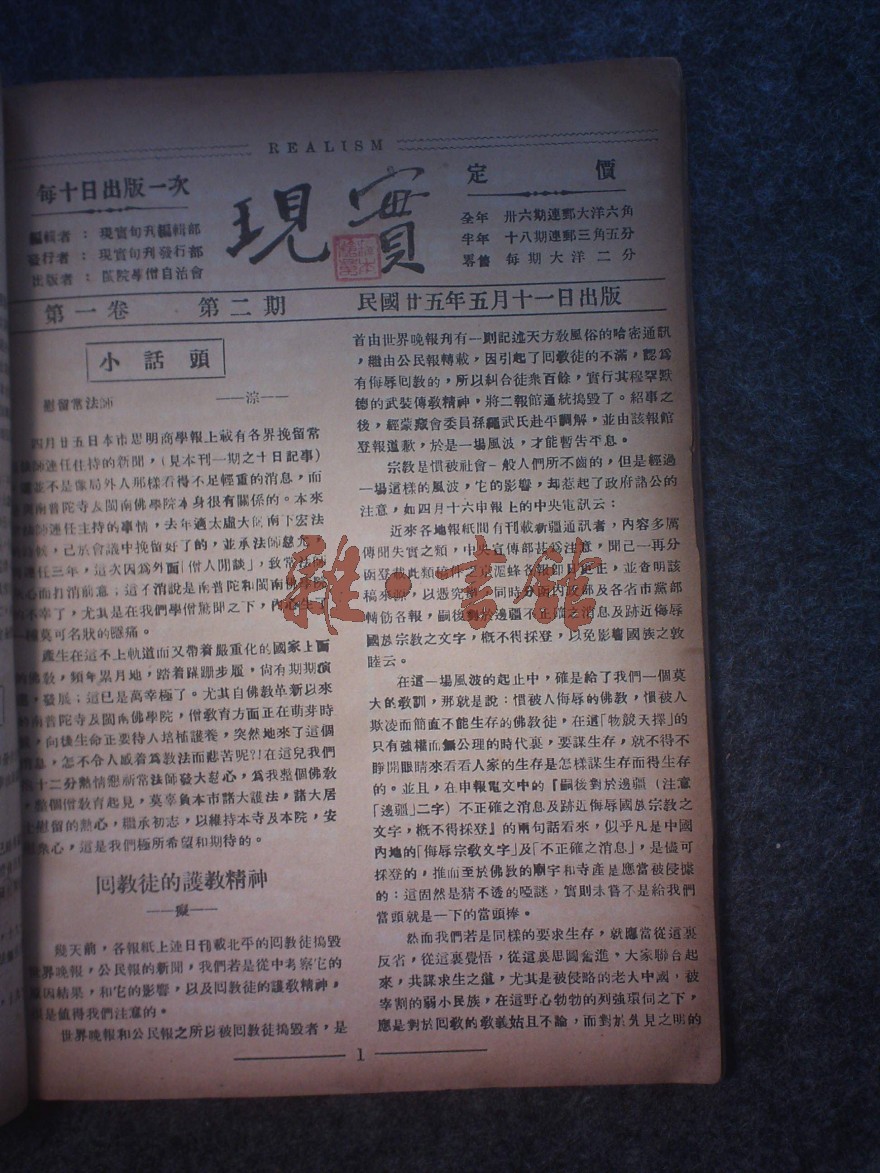 REALISM
每十日出版一次
編輯者：現實旬刋編輯部
發行者：現實旬刋發行部
出版者：閩院學僧自治會
現實
定價
全年 卅六期連郵大洋六角
半年 十八期連郵三角五分
零售 每期大洋二分
第一卷 第二期 民國廿五年五月十一日出版
小話頭
慰留常法師 ——涼——
四月廿五日本市思明商學報上載有各界挽留常
法師連任住持的新聞，(見本刊一期之十日記事)
並不是像局外人那樣看得不足輕重的消息，而
南普陀寺及閩南佛學院本身很有關係的。本來
法師連任主持的事情，去年適太虛大師南下宏法
，已於會議中挽留好了的，並承法師慈允，
連任三年，這次因為外面「僧人閒談」，致常法師
心而打消前意；這不消說是南普陀和閩南佛學院
不幸了，尤其是在我們學僧驚聞之下，內心生了
種莫可名狀的隱痛。
產生在這不上軌道而又帶着嚴重化的國家上面
的佛教，頻年累月地，踏着蹣跚步履，尙有期期演
進，發展；這已是萬幸極了。尤其自佛教革新以來
的南普陀寺及閩南佛學院，僧教育方面正在萌芽時
，向後生命正要待人培植護養，突然地來了這個
息，怎不令人感着為教法而悲苦呢?!在這兒我們
十二分熱情懇祈常法師發大慈心，為我整個佛教
整個僧教育起見，莫辜負本市諸大護法，諸大居
慰留的熱心，繼承初志，以維持本寺及本院，安
衆心，這是我們極所希望和期待的。
回教徒的護教精神
——癡——
幾天前，各報紙上連日刊載北平的回教徒搗毀
世界晚報，公民報的新聞，我們若是從中考察它的
原因結果，和它的影響，以及回教徒的護教精神，
是值得我們注意的。
世界晚報和公民報之所以被回教徒搗毀者，是
首由世界晚報刋有一則記述天方教風俗的哈密通訊
，繼由公民報轉載，因引起了回教徒的不滿，認爲
有侮辱回教的，所以糾合徒衆百餘，實行其穆罕默
德的武裝傳教精神，將二報館通統搗毀了。紹事之
後，經蒙藏會委員孫繩武氏赴平調解，並由該報館
登報道歉，於是一場風波，才能暫告平息。
宗教是慣被社會一般人們所不齒的，但是經過
一場這樣的風波，它的影響，却惹起了政府諸公的
注意，如四月十六申報上的中央電訊云：
近來各地報紙間有刊載新疆通訊者，內容多屬
傳聞失實之類，中央宣傳部甚爲注意，聞已一再分
函登載此類稿件之京滬蜂各報即日更正，並查明該
稿來源，以憑究辦，同時分函內政部及各省市黨部
轉飭各報，嗣後對於邊疆不正確之消息及跡近侮辱
國族宗教之文字，概不得採登，以免影響國族之敦
睦云。
在這一場風波的起止中，確是給了我們一個莫
大的教訓，那就是說：慣被人侮辱的佛教，慣被人
欺凌而簡直不能生存的佛教徒，在這「物競天擇」的
只有強權而無公理的時代裏，要謀生存，就不得不
睜開眼睛來看看人家的生存是怎樣謀生存而得生存
的。並且，在申報電文中的『嗣後對於邊疆（注意
「邊疆」二字）不正確之消息及跡近侮辱國族宗教之
文字，概不得採登』的兩句話看來，似乎凡是中國
內地的「侮辱宗教文字」及「不正確之消息」，是儘可
採登的，推而至於佛教的廟宇和寺產是應當被侵據
的；這固然是猜不透的啞謎，實則未嘗不是給我們
當頭就是一下的當頭捧。
然而我們若是同樣的要求生存，就應當從這裏
反省，從這裏覺悟，從這裏思圖奮進，大家聯合起
來，共謀求生之道，尤其是被侵略的老大中國，被
宰割的弱小民族，在這野心勃勃的列強環伺之下，
應是對於回教的教義姑且不論，而對於先見之明的
1
雜·書館